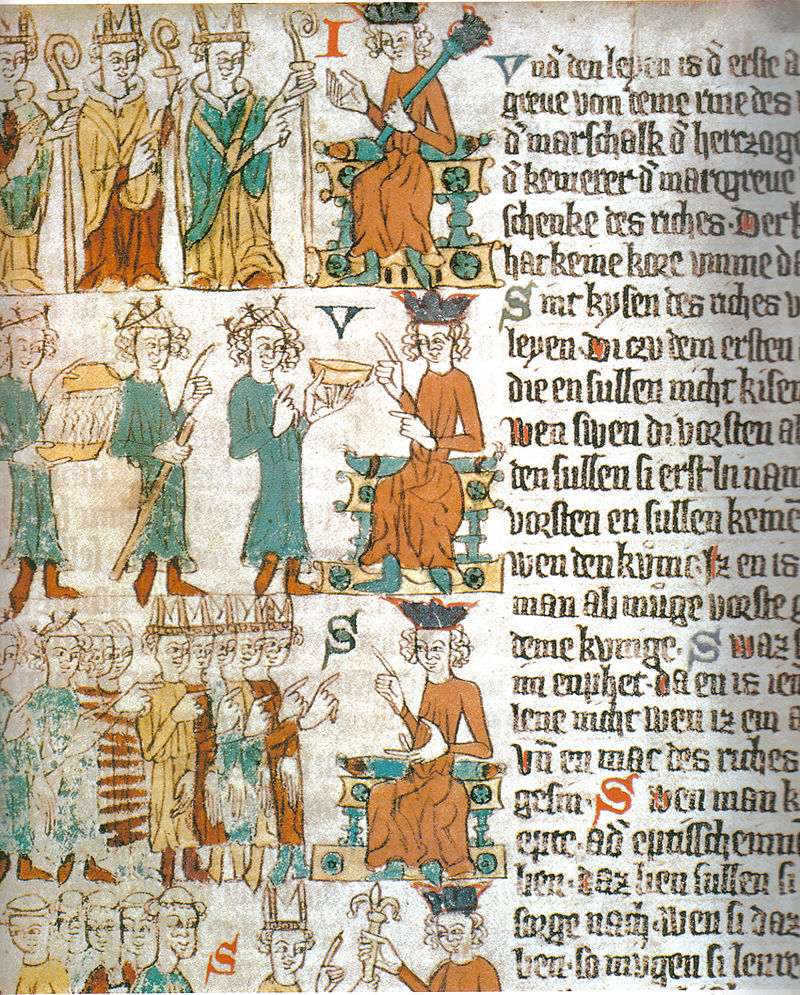 I
V
S
S
Vnd̄ den leyen is d̄ erste a
greue von deme rine des
d̄ marschalk d̄ herczoge
d̄ kemerer d̄ marcgreue
schenke des riches. Der k
har keme kore vmme da
Sint kysen des riches v
leyen. Di czu dem ersten
die en sullen nicht kisen
Wen swen di vorsten al
den sullen si erst bi nam
vorsten en sullen keinē
wen den kůnic. Iz en is
man ab můge vorste g
deme kunige. Swaz
im enphet. da en is ien
lene nicht wen iz ein a
Vn̄ en mac des riches
gesin. Swen man k
epte. ad̄ eptisschinn
lien. daz lien sullen si
sorge nach. wen si daz
ben. so mugen si lenre